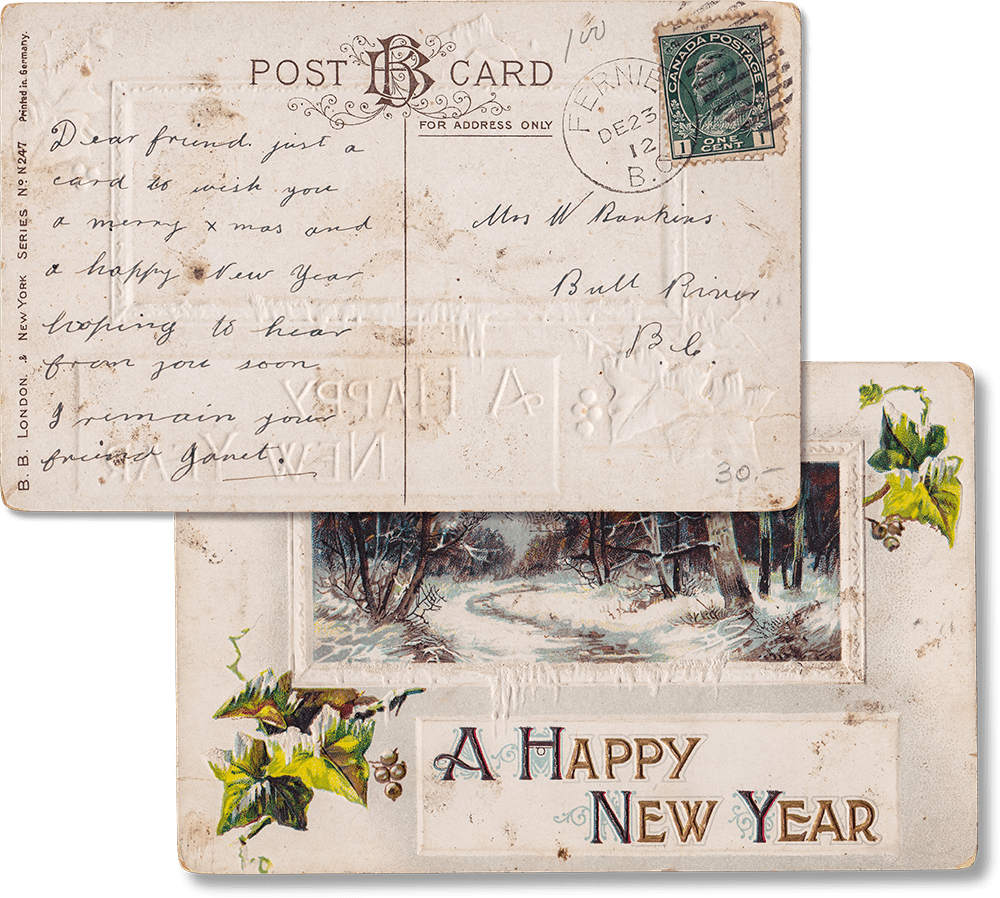 POST BB CARD
FOR ADDRESS ONLY
100
CANADA POSTAGE
1 ONE CENT 1
FERNIE
DE 23
12
B.C
B. B. LONDON. & NEW YORK SERIES No N247 Printed in Germany.
Dear friend. just a
card to wish you
a merry x mas and
a happy New Year
hoping to hear
from you soon
I remain your
friend Janet.
Mrs W Bankins
Bull River
B.C.
A HAPPY
NEW YEAR
30.-
A HAPPY
NEW YEAR